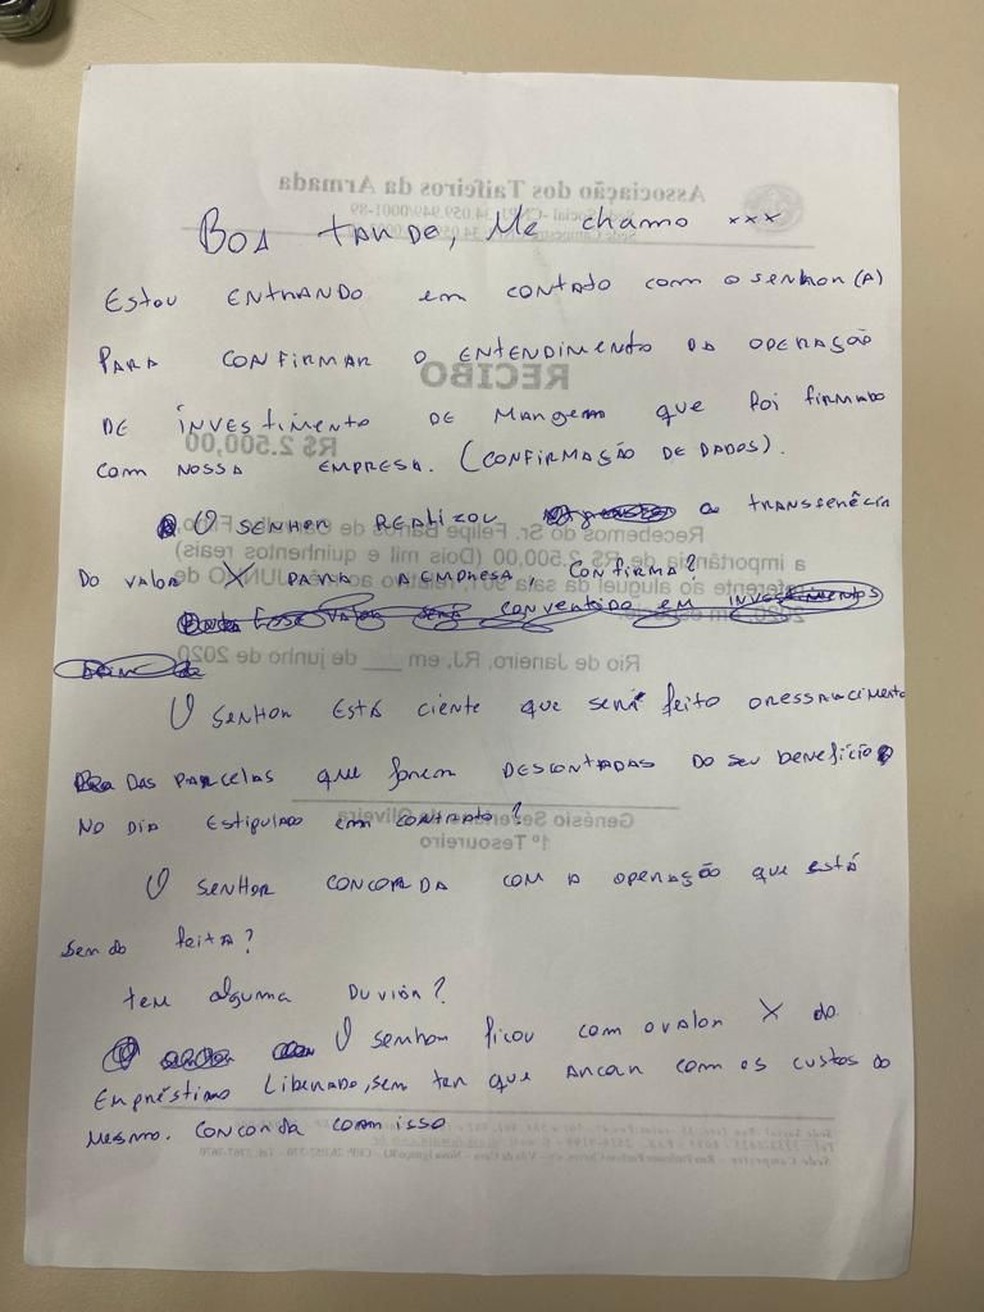 Associação dos Taifeiros da Armada
BOA TARDE, Me chamo xxx
Estou ENTRANDO em CONTATO com o senhor (A)
PARA CONFIRMAR O ENTENDIMENTO DA OPERASÃO
RECIBO
DE INVESTIMENTO DE Margem que foi firmado
R$ 2.500,00
com NOSSA EMPRESA. (CONFIRMASÃO DE DADOS).
O SENHOR REALIZOU a TRANSFERÊCIA
Recebemos do Sr. Felipe
a importância de R$ 2.500,00 (Dois mil e quinhentos reais)
Do valor X PARA A EMPRESA, CONFIRMA?
referente ao aluguel da sala
Esse valor será convertido em investimentos
Rio de Janeiro, RJ, em ___ de junho de 2020
O SENHOR ESTÁ ciente que será feito o ressarcimento
DAS PARCELAS que forem DESCONTADAS Do seu beneficio
NO DIA Estipulado em contrato?
Genésio Oliveira
1º Tesoureiro
O SENHOR CONCORDA COM A operação que está
Sendo feita?
tem alguma DUVIDA?
O senhor ficou com o valor X do
Empréstimo Liberado, sem ter que Arcar com os custos do
Mesmo. Concorda com isso